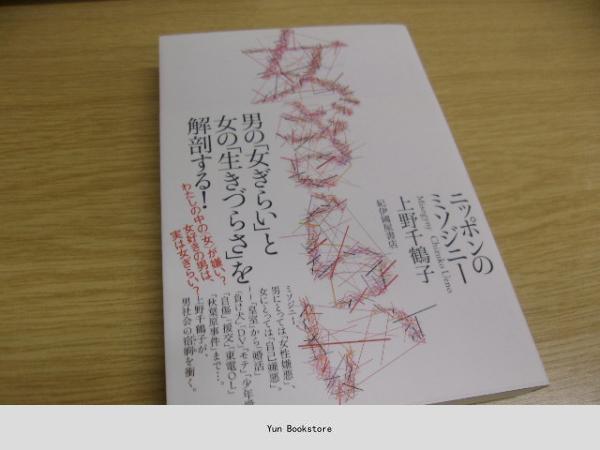 女ぎらい
ニッポンの
ミソジニー
Misogyny Chizuko Ueno
上野千鶴子
紀伊國屋書店
男の「女ぎらい」と
女の「生きづらさ」を
解剖する!
わたしの中の「女」が嫌い?
女好きの男は、
実は女ぎらい?
ミソジニー。
男にとっては「女性嫌悪」、
女にとっては「自己嫌悪」。
「皇室」から「婚活」
「負け犬」「DV」「モテ」「少年愛
「自傷」「援交」「東電OL」
「秋葉原事件」まで…。
上野千鶴子が、
男社会の宿痾を衝く。
Yun Bookstore